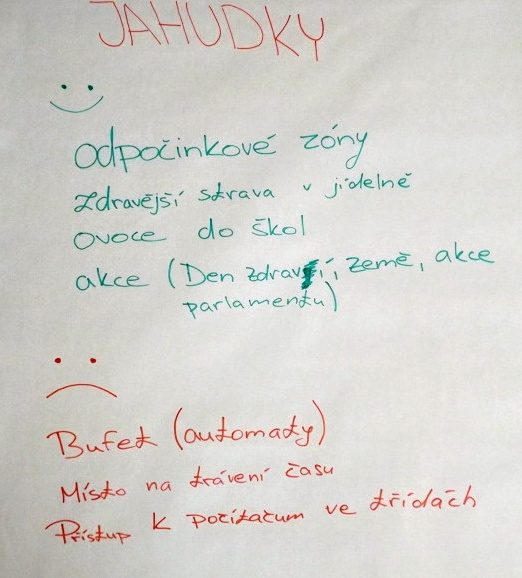 JAHUDKY
odpočinkové zóny
zdravější strava v jídelně
ovoce do škol
akce (Den zdraví, země, akce
parlamentu)
Bufet (automaty)
Místo na trávení času
Přístup k počítačum ve třídách